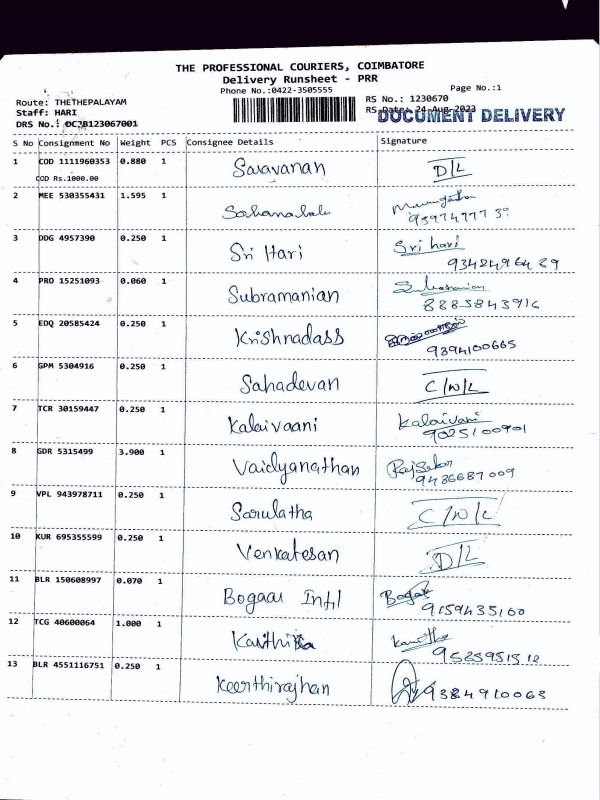 THE PROFESSIONAL COURIERS, COIMBATORE
Delivery Runsheet - PRR
Phone No.:0422-3505555
Page No.:1
Route: THETHEPALAYAM
RS No.: 1230670
Staff: HARI
RS Date: 24-Aug-2023
DOCUMENT DELIVERY
DRS No.: OCJB123067001
S No Consignment No Weight PCS Consignee Details Signature
1 COD 1111960353 0.880 1 Saravanan D/L
COD Rs.1000.00
2 MEE 530355431 1.595 1
3 DDG 4957390 0.250 1 Sri Hari Sri hari
9342496489
4 PRO 15251093 0.060 1 Subramanian Subramanian
8883843916
5 EDQ 20585424 0.250 1 Krishnadass
9394100665
6 GPM 5304916 0.250 1 Sahadevan C/N/L
7 TCR 30159447 0.250 1 Kalaivaani Kalaivani
9025100901
8 GDR 5315499 3.900 1 Vaidyanathan Rajsekar
9486687009
9 VPL 943978711 0.250 1 Sarulatha C/N/L
10 KUR 695355599 0.250 1 Venkatesan D/L
11 BLR 150608997 0.070 1 Bogaar Intl Bogar
9159435160
12 TCG 40600064 1.000 1 Karthika
13 BLR 4551116751 0.250 1 Keerthirajhan 9384910063